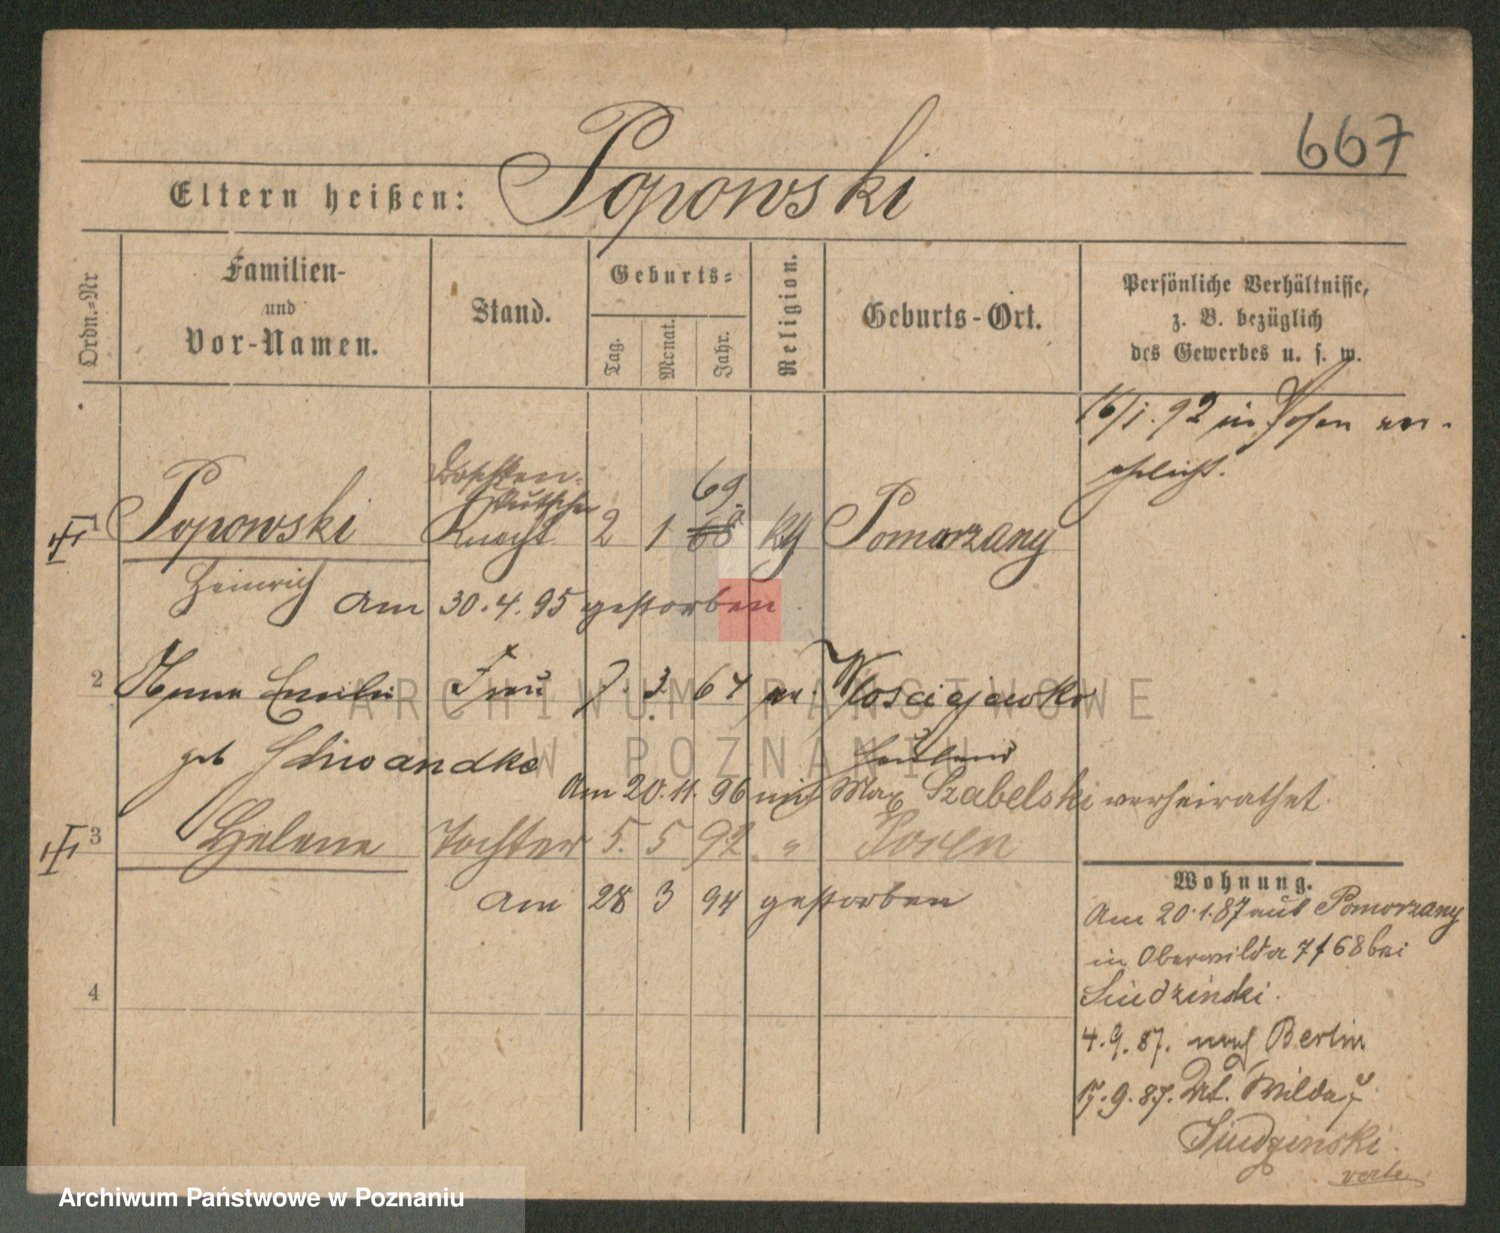 667
Eltern heißen: Popowski
Ordn.-Nr
Familien-
und
Vor-Namen.
Stand.
Geburts-
Tag.
Monat.
Jahr.
Religion.
Geburts-Ort.
Persönliche Verhältnisse,
z. B. bezüglich
des Gewerbes u. s. w.
16/1. 92 in Posen ver-
ehelicht.
Droschken-
kutscher
69.
1 Popowski Knecht 2 1 68 kg Pomorzany
Heinrich am 30.4.95 gestorben
2 Anna Emilie Frau 7. 3. 64 ev. Wlosciejewko
geb
Am 20.11.96 mit Max Szabelski verheirathet.
3 Helene Tochter 5. 5 92 " Posen
am 28 3 94 gestorben
4
Wohnung.
Am 20.1.87 aus Pomorzany
in Oberwilda 7 f 68 bei
4.9.87. nach Berlin
17.9.87. Wilda 7
ARCHIWUM PAŃSTWOWE
W POZNANIU
Archiwum Państwowe w Poznaniu